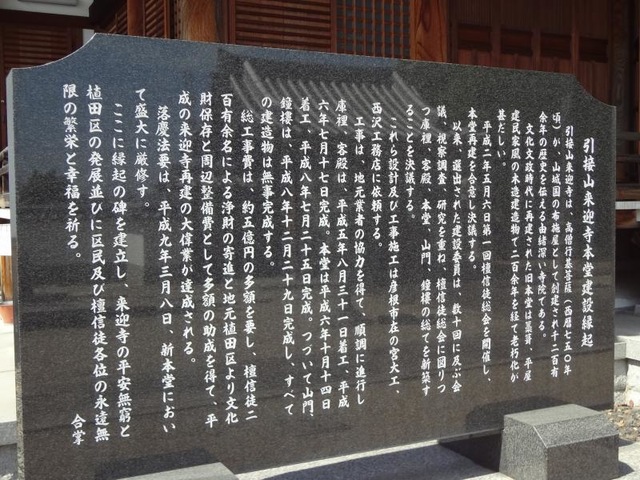 引接山来迎寺本堂建設縁起
引接山来迎寺は、高僧行基菩薩（西暦七五〇年
頃）が、山城国の布施屋として創建され千二百有
余年の歴史を伝える由緒深い寺院である。
文化文政時代に再建された旧本堂は藁葺、平屋
建民家風の木造建造物で二百余年を経て老朽化が
甚だしい。
平成二年五月六日第一回檀信徒総会を開催し、
本堂再建を合意し決議する。
以来、選出された建設委員は、数十回に及ぶ会
議、視察調査、研究を重ね、檀信徒総会に図りつ
つ庫裡、客殿、本堂、山門、鐘楼の総てを新築す
ることを決議する。
これら設計及び工事施工は彦根市在の宮大工、
西沢工務店に依頼する。
工事は、地元業者の協力を得て、順調に進行し
庫裡、客殿は、平成五年八月三十一日着工、平成
六年七月十七日完成。本堂は平成六年十月十四日
着工、平成八年七月二十五日完成。つづいて山門、
鐘楼は、平成八年十二月二十九日完成し、すべて
の建造物は無事完成する。
総工事費は、約五億円の多額を要し、檀信徒二
百有余名による浄財の寄進と地元植田区より文化
財保存と周辺整備費として多額の助成を得て、平
成の来迎寺再建の大偉業が達成される。
落慶法要は、平成九年三月八日、新本堂におい
て盛大に厳修す。
ここに縁起の碑を建立し、来迎寺の平安無窮と
植田区の発展並びに区民及び檀信徒各位の永遠無
限の繁栄と幸福を祈る。
合掌